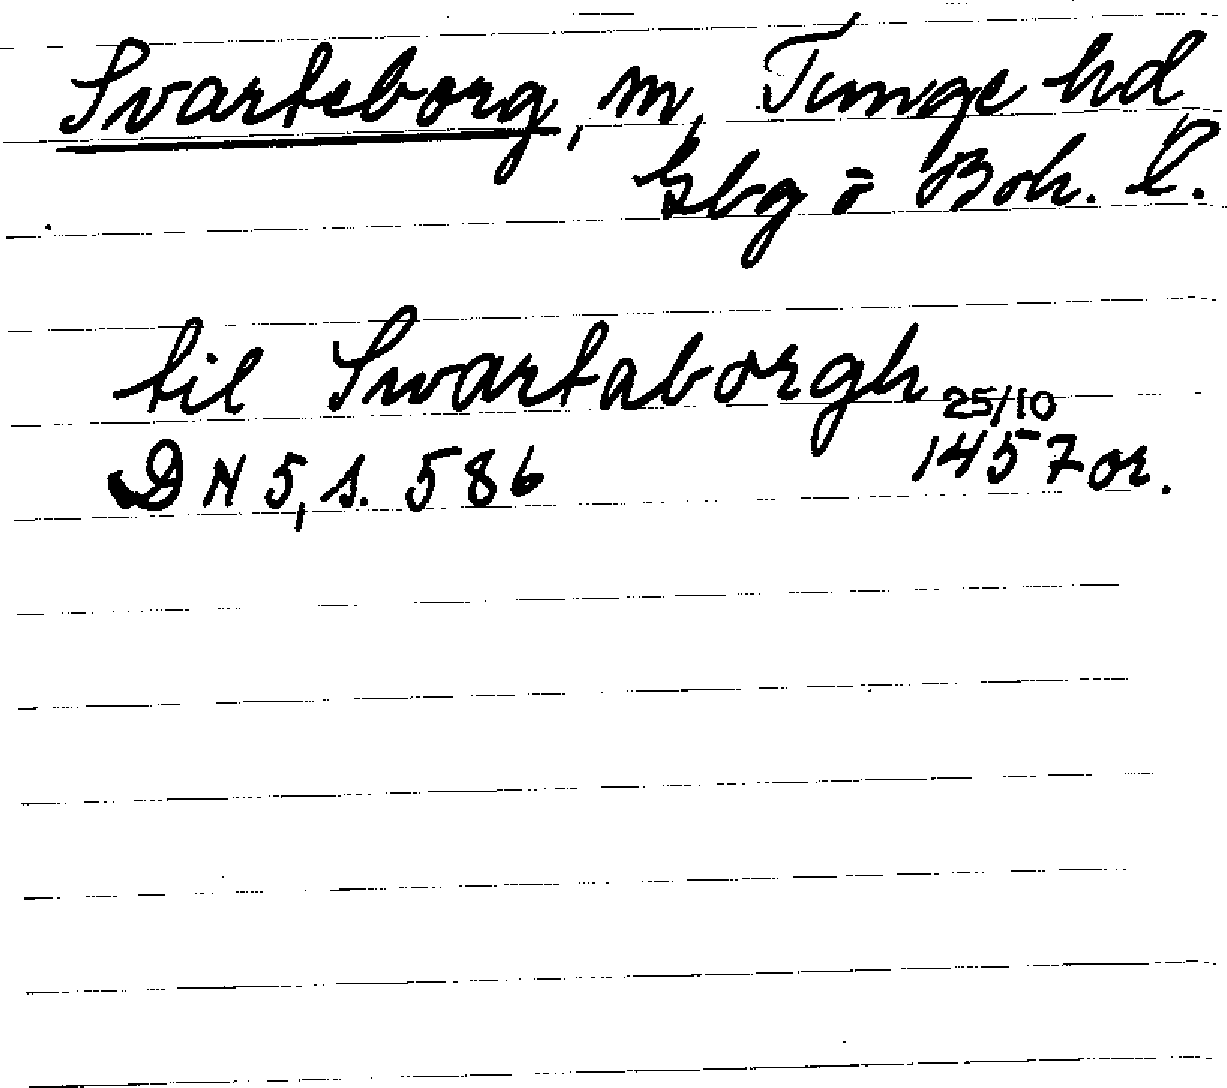 Svarteborg, m, Tunge hd
Gbg o Boh. l.
til Swartaborgh 25/10
DN 5, s. 586 1457 or.